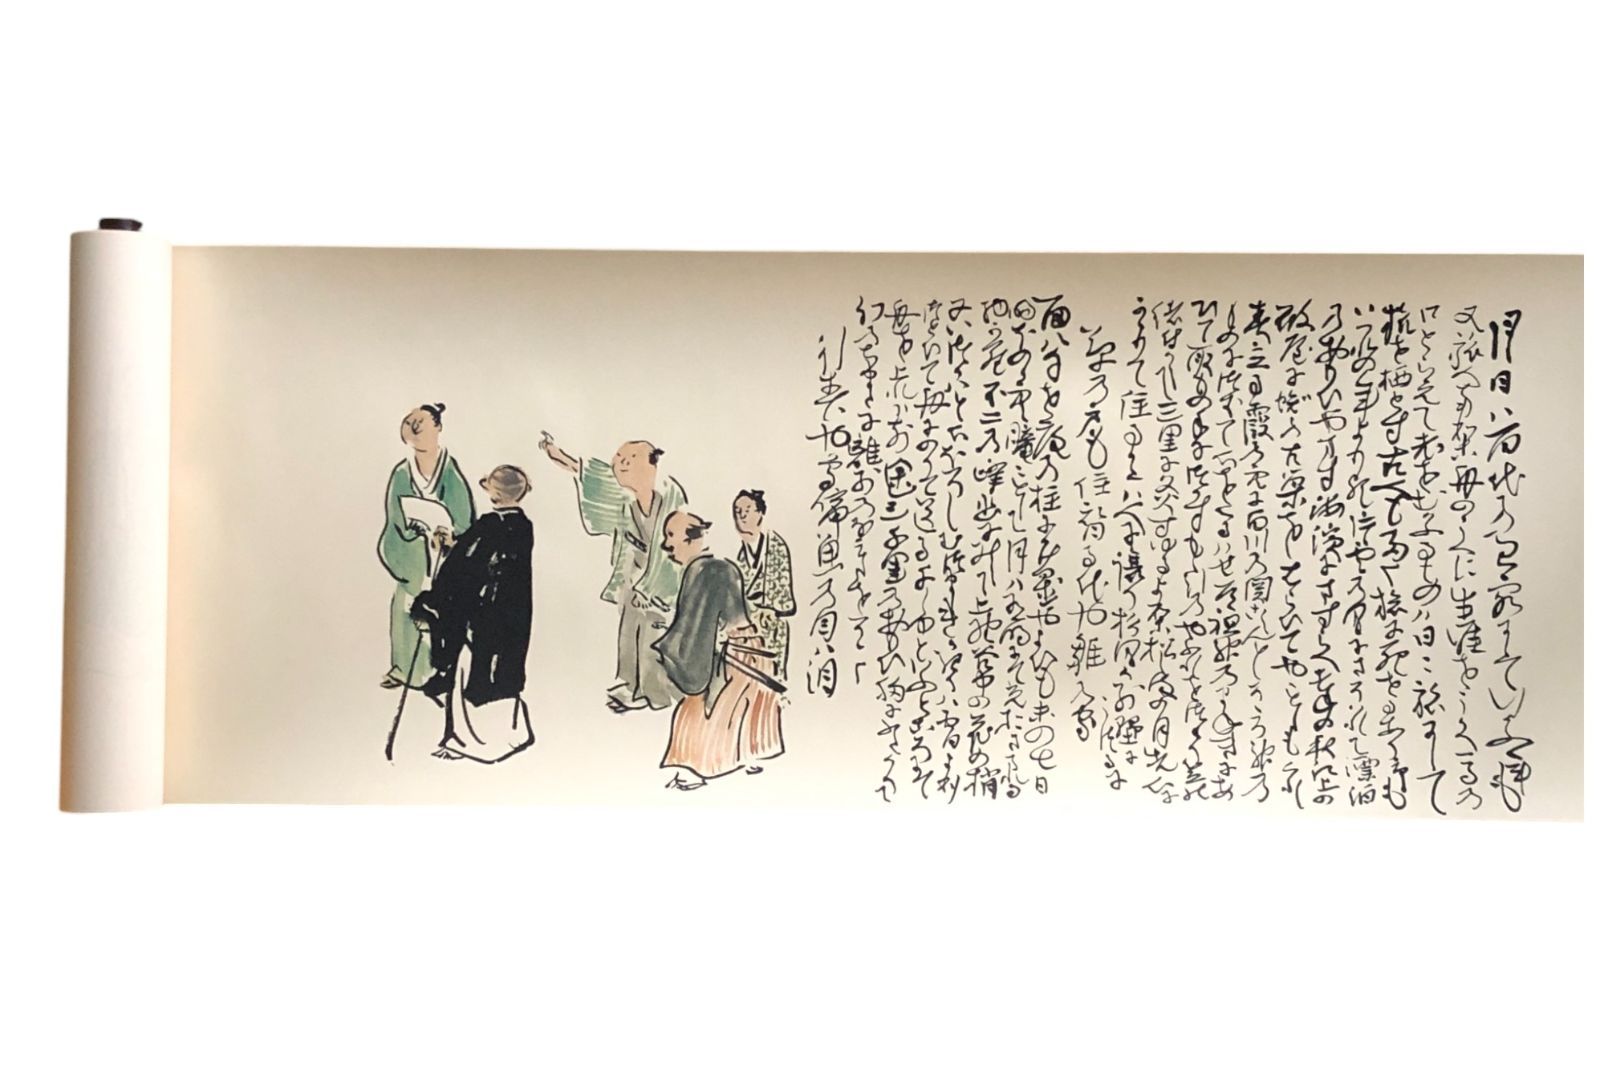 月日ハ百代の過客にしていきかふ年も
又旅人也舟の上に生涯をうかへ馬の
口とらえて老をむかふるものハ日々旅にして
旅を栖とす古人も多く旅に死せるあり予も
いつれの年よりか片雲の風にさそハれて漂泊
の思ひやます海濱にさすらへ去年の秋江上の
破屋に蜘の古巣をはらひてやゝ年も暮
春立る霞の空に白川の関こえんとそゝろ神の
ものにつきて心をくるハせ道祖神のまねきにあ
ひて取もの手につかすもゝ引の破れをつゝり笠の
緒付かえて三里に灸すゆるより松嶋の月先心に
かゝりて住る方ハ人に譲り杉風か別墅に
うつるに
草の戸も住替る代や雛の家
面八句を庵の柱に懸置弥生も末の七日
明ほのゝ空朧々として月ハ有明にて光おさまれる
物から不二の峰幽にみえて上野谷中の花の梢
又いつかはと心ほそしむつましきかきりハ宵よりつとひ
て舟にのりて送る千しゆといふ所にて
舟をあかれは前途三千里の思ひ胸にふさかりて
幻のちまたに離別の泪をそゝく
行春や鳥啼魚の目ハ泪